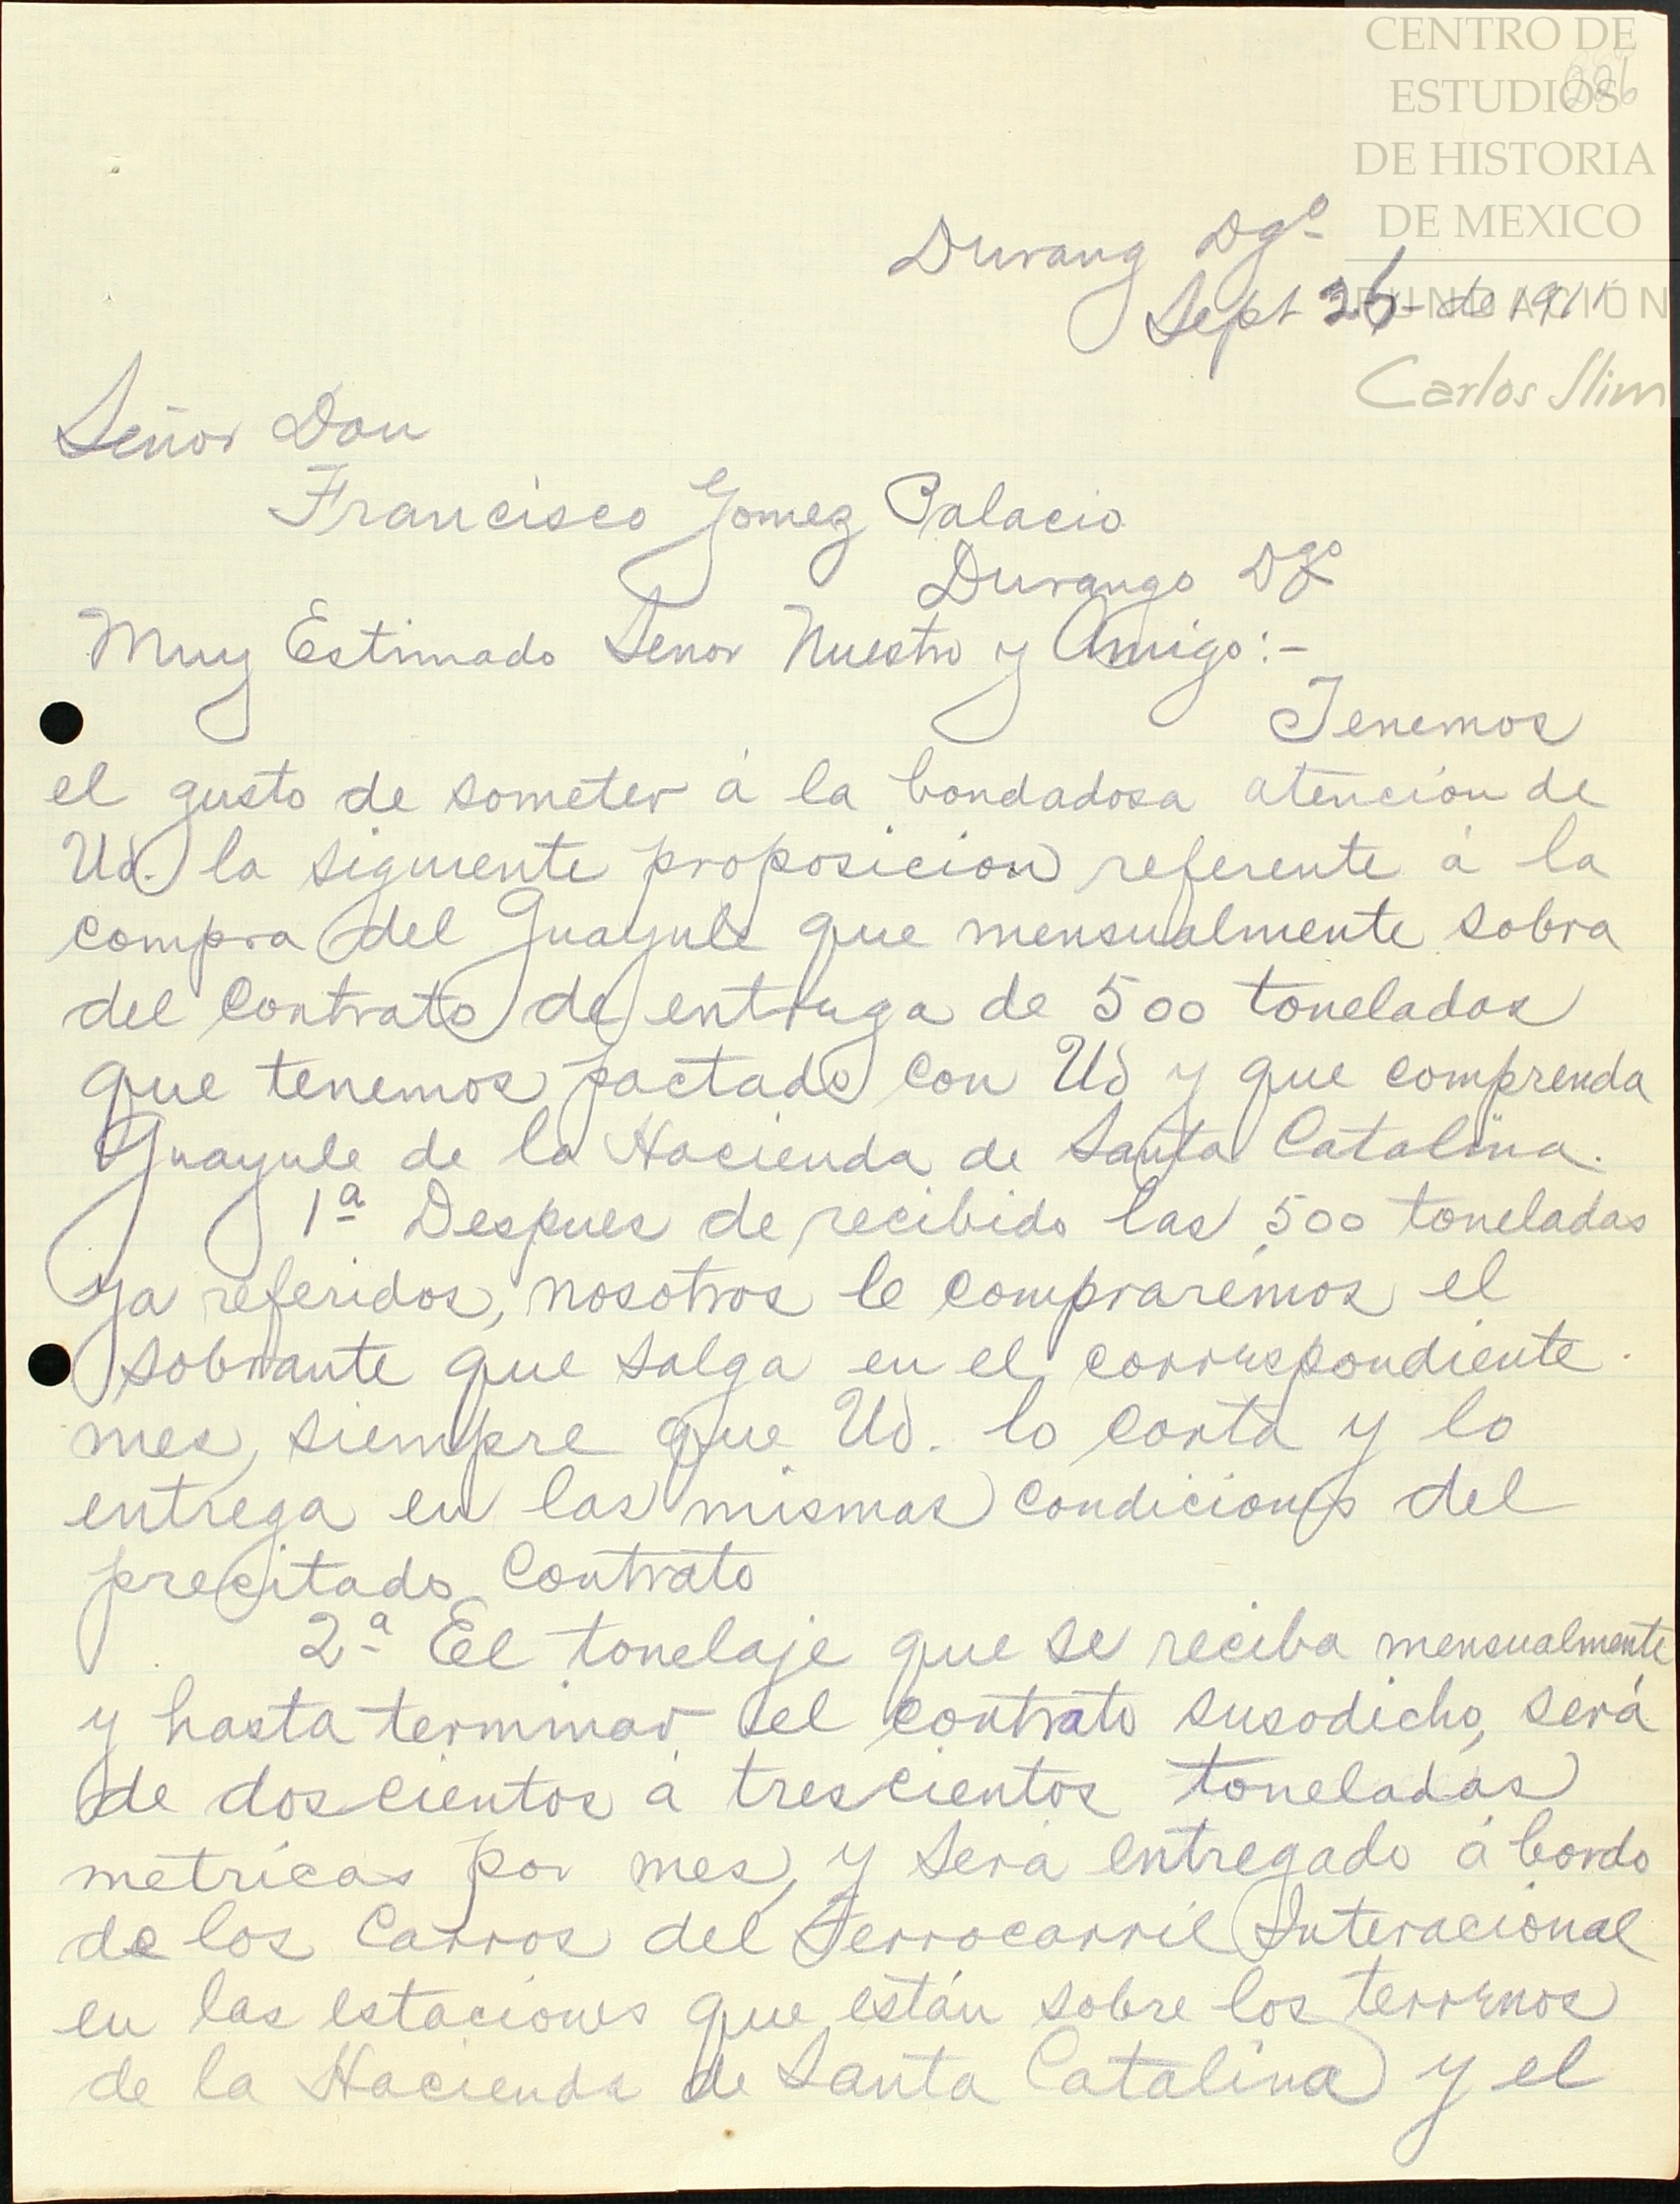 CENTRO DE
ESTUDIOS
DE HISTORIA
DE MEXICO
FUNDACION
Carlos Slim
Durang Dgo
Sept 26 - de 1911
Señor Don
Francisco Gomez Palacio
Durango Dgo
Muy Estimado Señor Nuestro y Amigo:-
Tenemos
el gusto de someter á la bondadosa atención de
Ud. la siguiente proposicion referente á la
compra del Guayule que mensualmente sobra
del Contrato de entrega de 500 toneladas
que tenemos pactado con Ud y que comprenda
Guayule de la Hacienda de Santa Catalina.
1ª Despues de recibido las 500 toneladas
ya referidos, nosotros le comprarémos el
sobrante que salga en el correspondiente
mes, siempre que Ud. lo corta y lo
entrega en las mismas condiciones del
precitado Contrato
2ª El tonelaje que se reciba mensualmente
y hasta terminar el contrato susodicho, será
de doscientos á trescientos toneladas
metricas por mes, y será entregado á bordo
de los Carros del Ferrocarril Interacional
en las estaciones que están sobre los terrenos
de la Hacienda de Santa Catalina y el